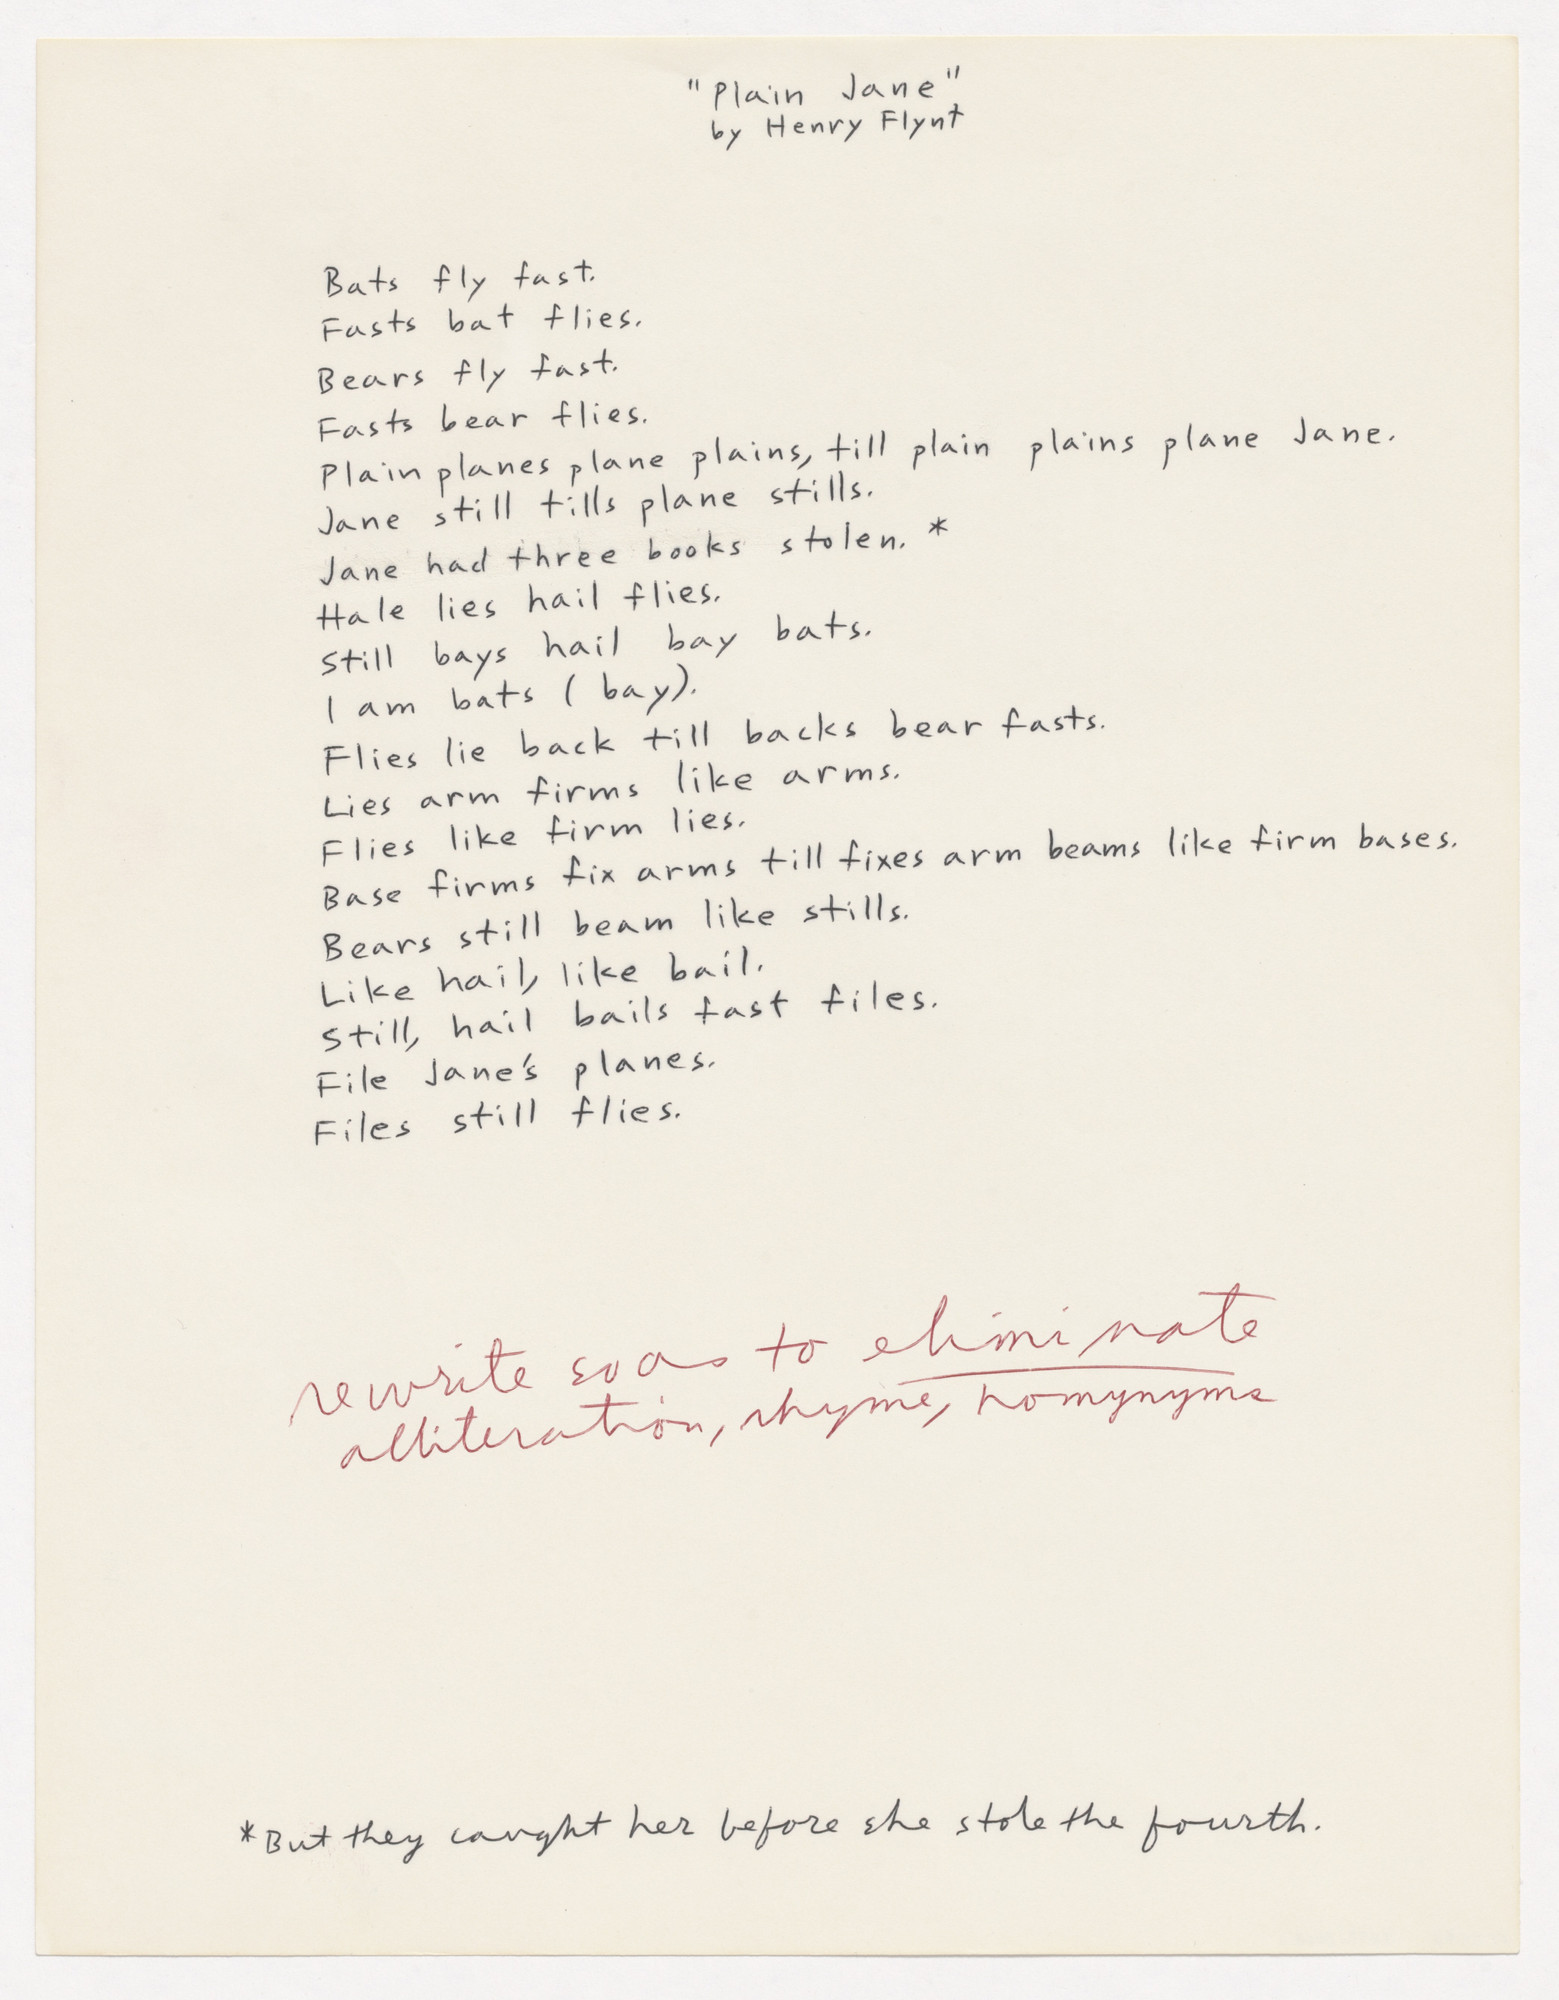 "Plain Jane"
by Henry Flynt
Bats fly fast.
Fasts bat flies.
Bears fly fast.
Fasts bear flies.
Plain planes plane plains, till plain plains plane Jane.
Jane still tills plane stills.
Jane had three books stolen. *
Hale lies hail flies.
Still bays hail bay bats.
I am bats (bay).
Flies lie back till backs bear fasts.
Lies arm firms like arms.
Flies like firm lies.
Base firms fix arms till fixes arm beams like firm bases.
Bears still beam like stills.
Like hail, like bail.
Still, hail bails fast files.
File Jane's planes.
Files still flies.
rewrite so as to eliminate
alliteration, rhyme, homynyms
*But they caught her before she stole the fourth.